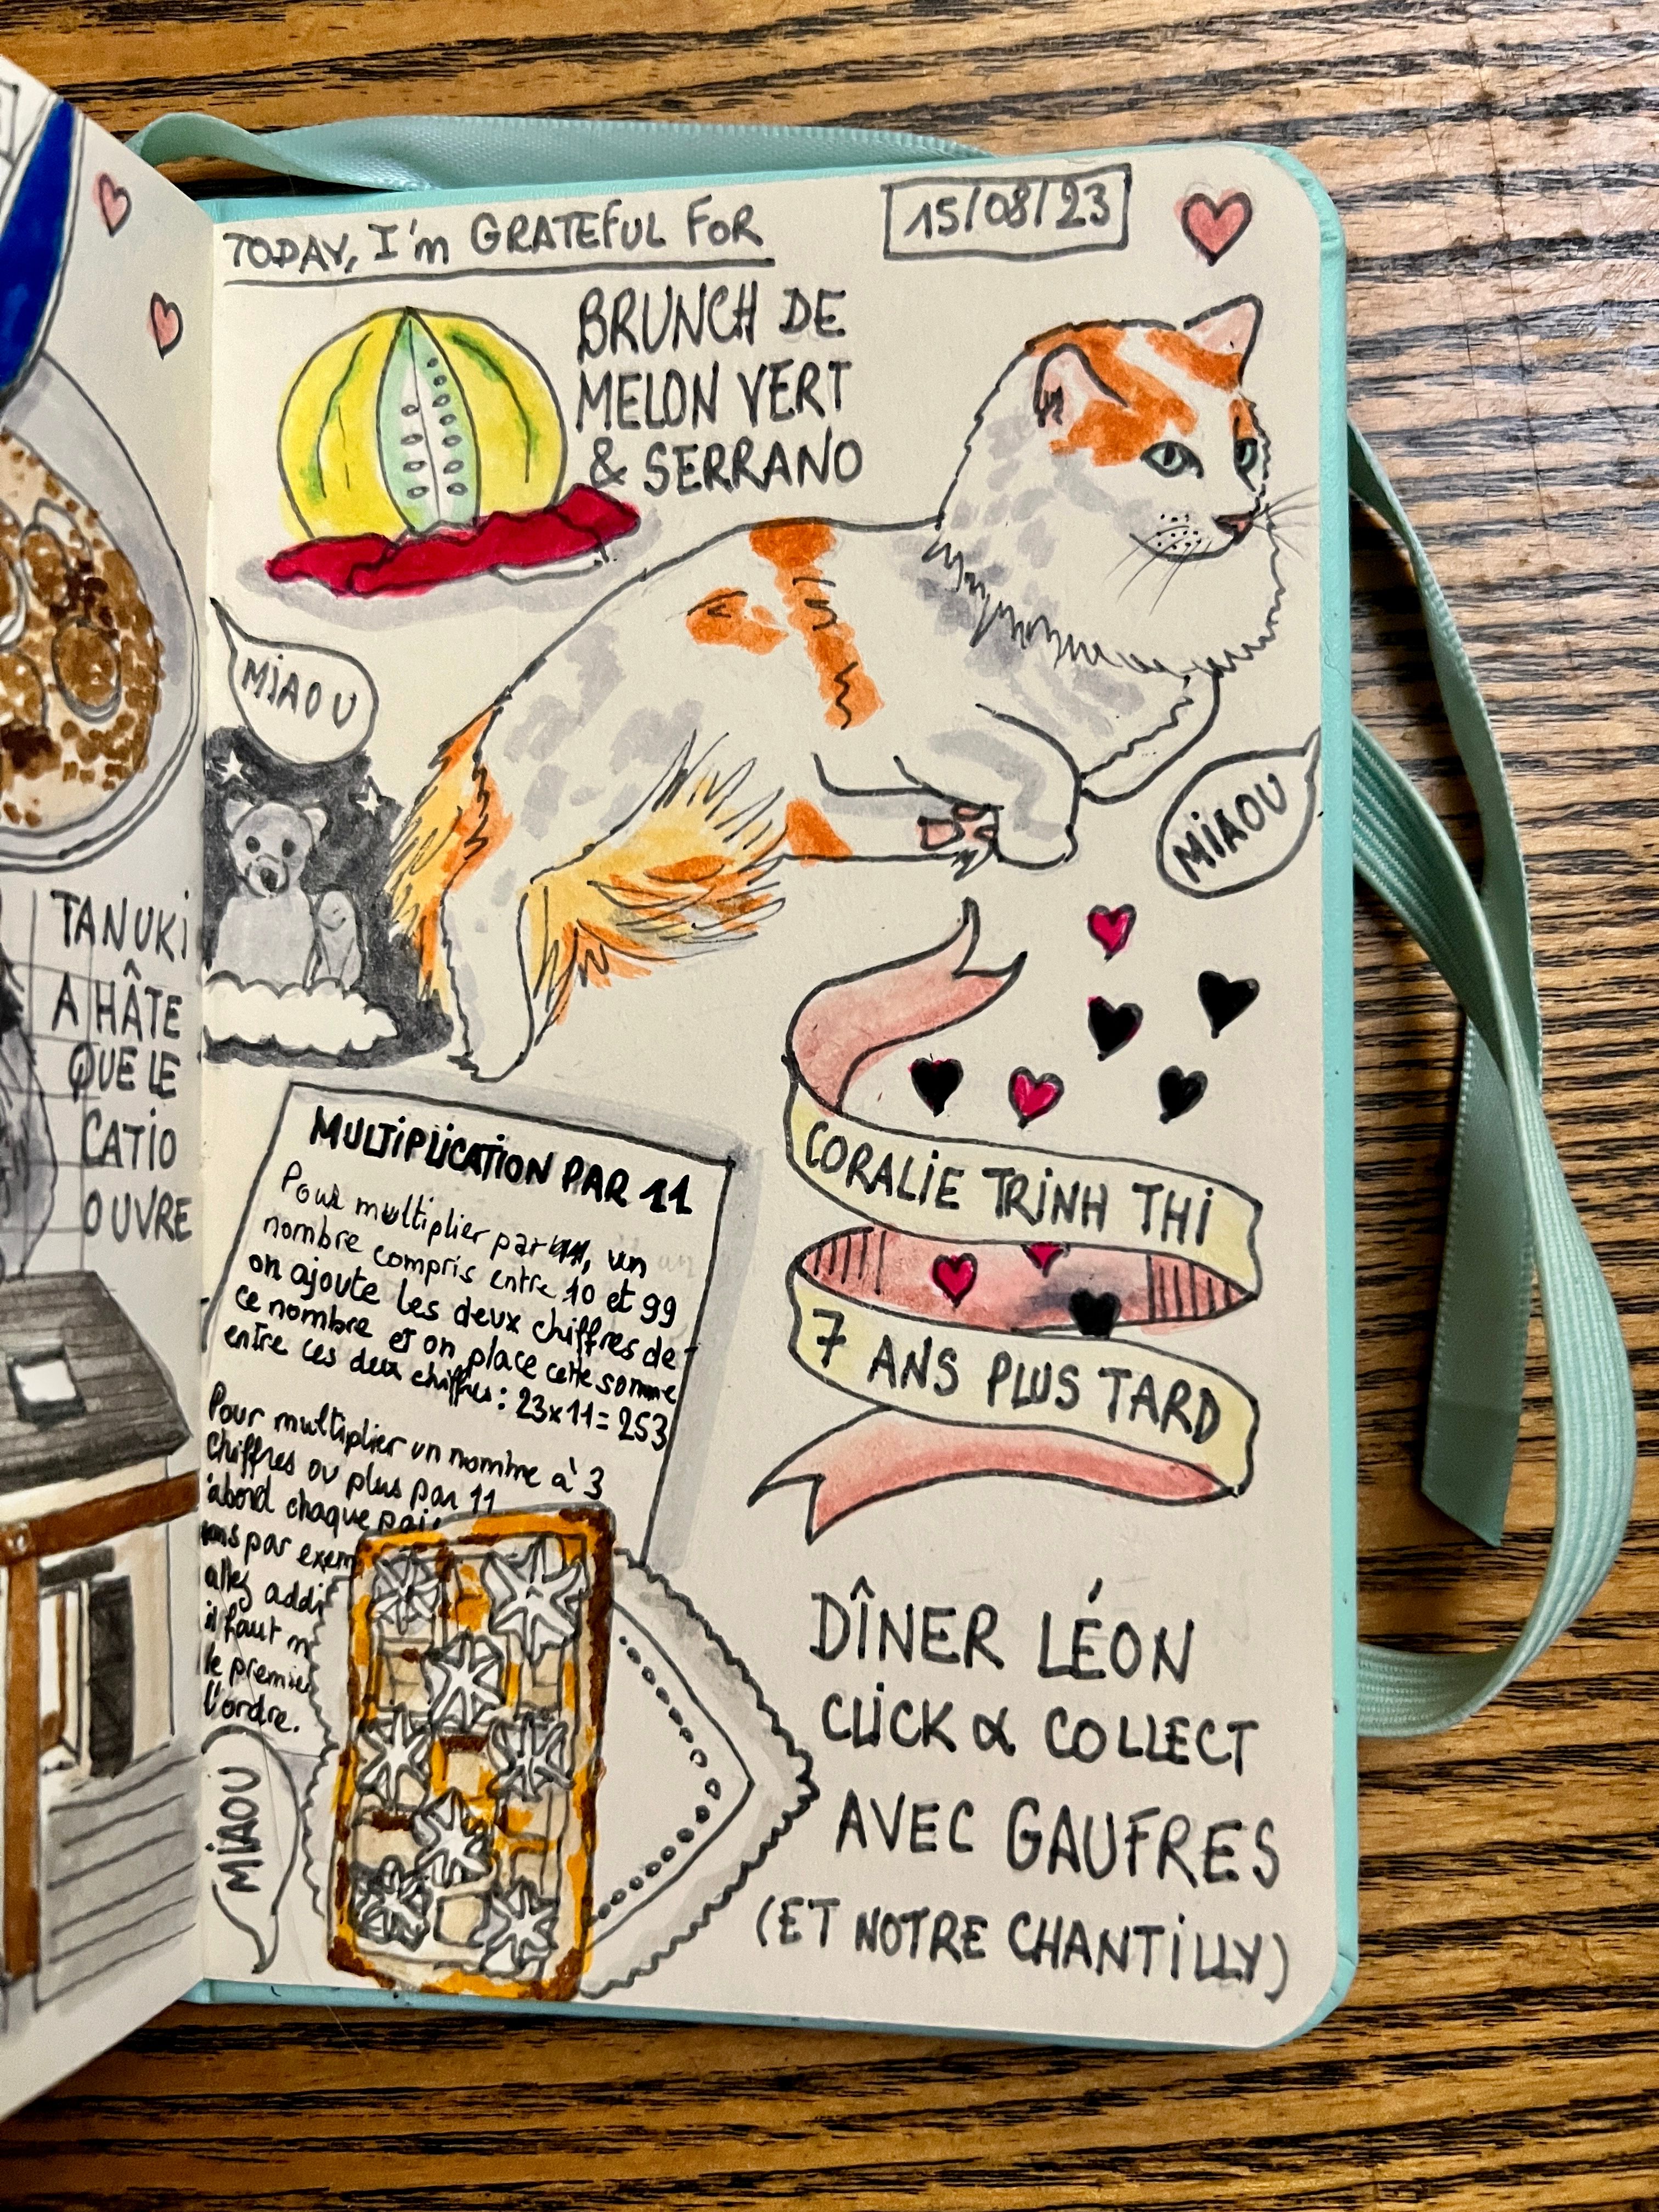 TODAY, I'm GRATEFUL FOR
15/08/23
BRUNCH DE
MELON VERT
& SERRANO
MIAOU
MIAOU
TANUKI
A HÂTE
QUE LE
CATIO
OUVRE
MULTIPLICATION PAR 11
Pour multiplier par 11, un
nombre compris entre 10 et 99
on ajoute les deux chiffres de
ce nombre et on place cette somme
entre ces deux chiffres : 23x11=253
Pour multiplier un nombre à 3
chiffres ou plus par 11
abord chaque
par exem
allez addi
il faut m
le premier
l'ordre.
MIAOU
CORALIE TRINH THI
7 ANS PLUS TARD
DÎNER LÉON
CLICK & COLLECT
AVEC GAUFRES
(ET NOTRE CHANTILLY)